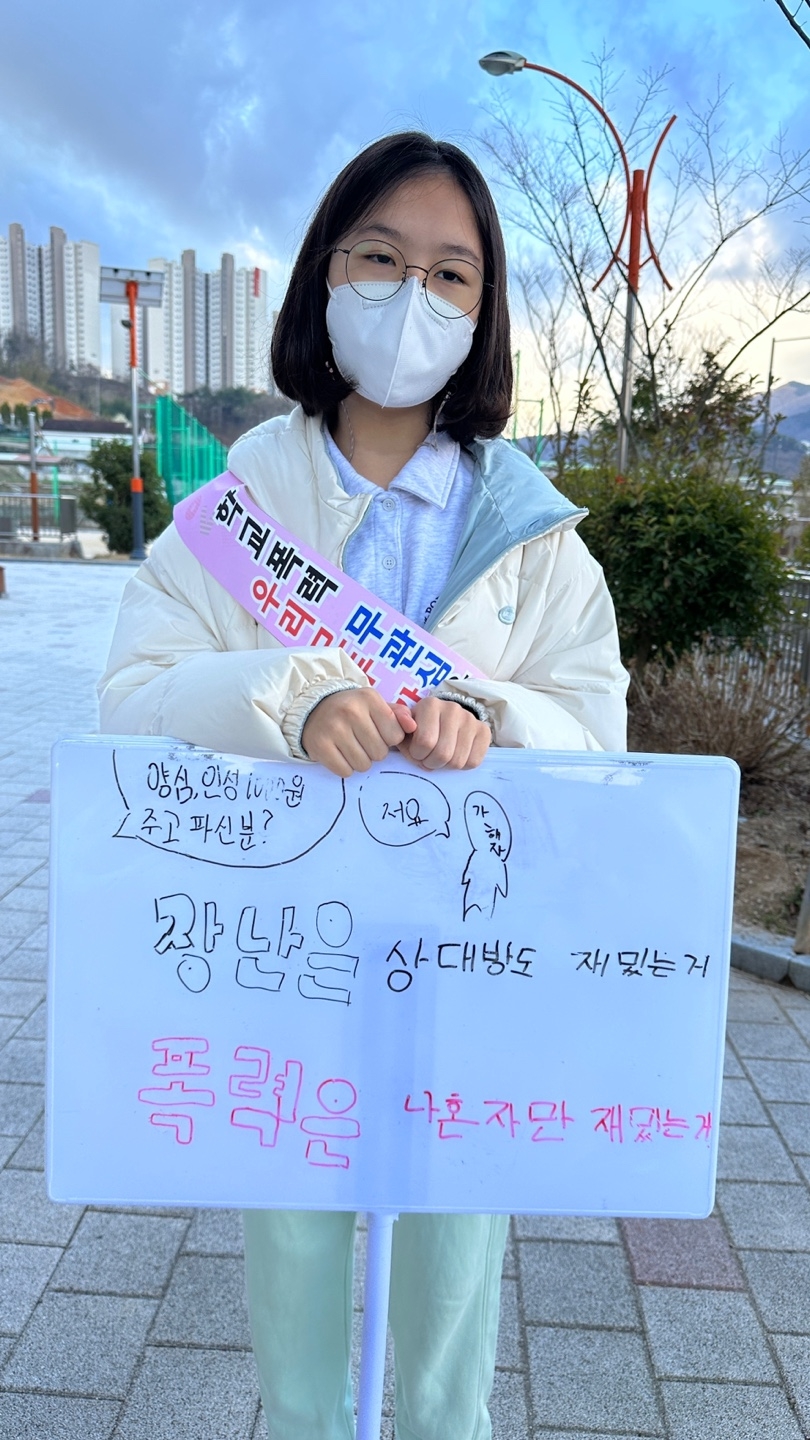 학교폭력 무관심
우리
양심, 인성
주고 파신분?
저요
가
해
자
장난은 상대방도 재밌는거
폭력은 나혼자만 재밌는거